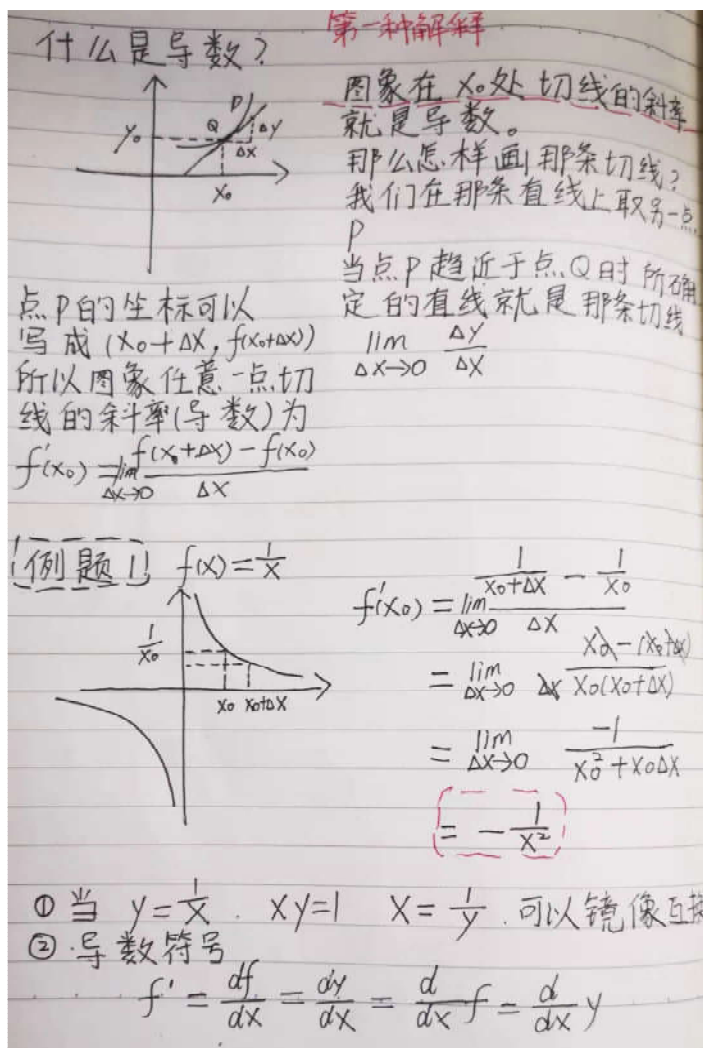 什么是导数?
第一种解释
P
Q
y₀
Δy
Δx
x₀
图象在 x₀处 切线的斜率
就是导数。
那么怎样画那条切线?
我们在那条直线上取另一点
P
当点P趋近于点Q时 所确
定的直线就是那条切线
lim Δx→0 Δy/Δx
点P的坐标可以
写成 (x₀+Δx, f(x₀+Δx))
所以图象任意一点切
线的斜率(导数)为
f'(x₀) = lim Δx→0 (f(x₀+Δx) − f(x₀))/Δx
例题1 f(x) = 1/x
1/x₀
x₀ x₀+Δx
f'(x₀) = lim Δx→0 (1/(x₀+Δx) − 1/x₀)/Δx
= lim Δx→0 1/Δx (x₀ − (x₀+Δx))/(x₀(x₀+Δx))
= lim Δx→0 −1/(x₀² + x₀Δx)
= − 1/x²
① 当 y = 1/x . xy=1 x = 1/y . 可以镜像互换
② .导数符号
f' = df/dx = dy/dx = d/dx f = d/dx y